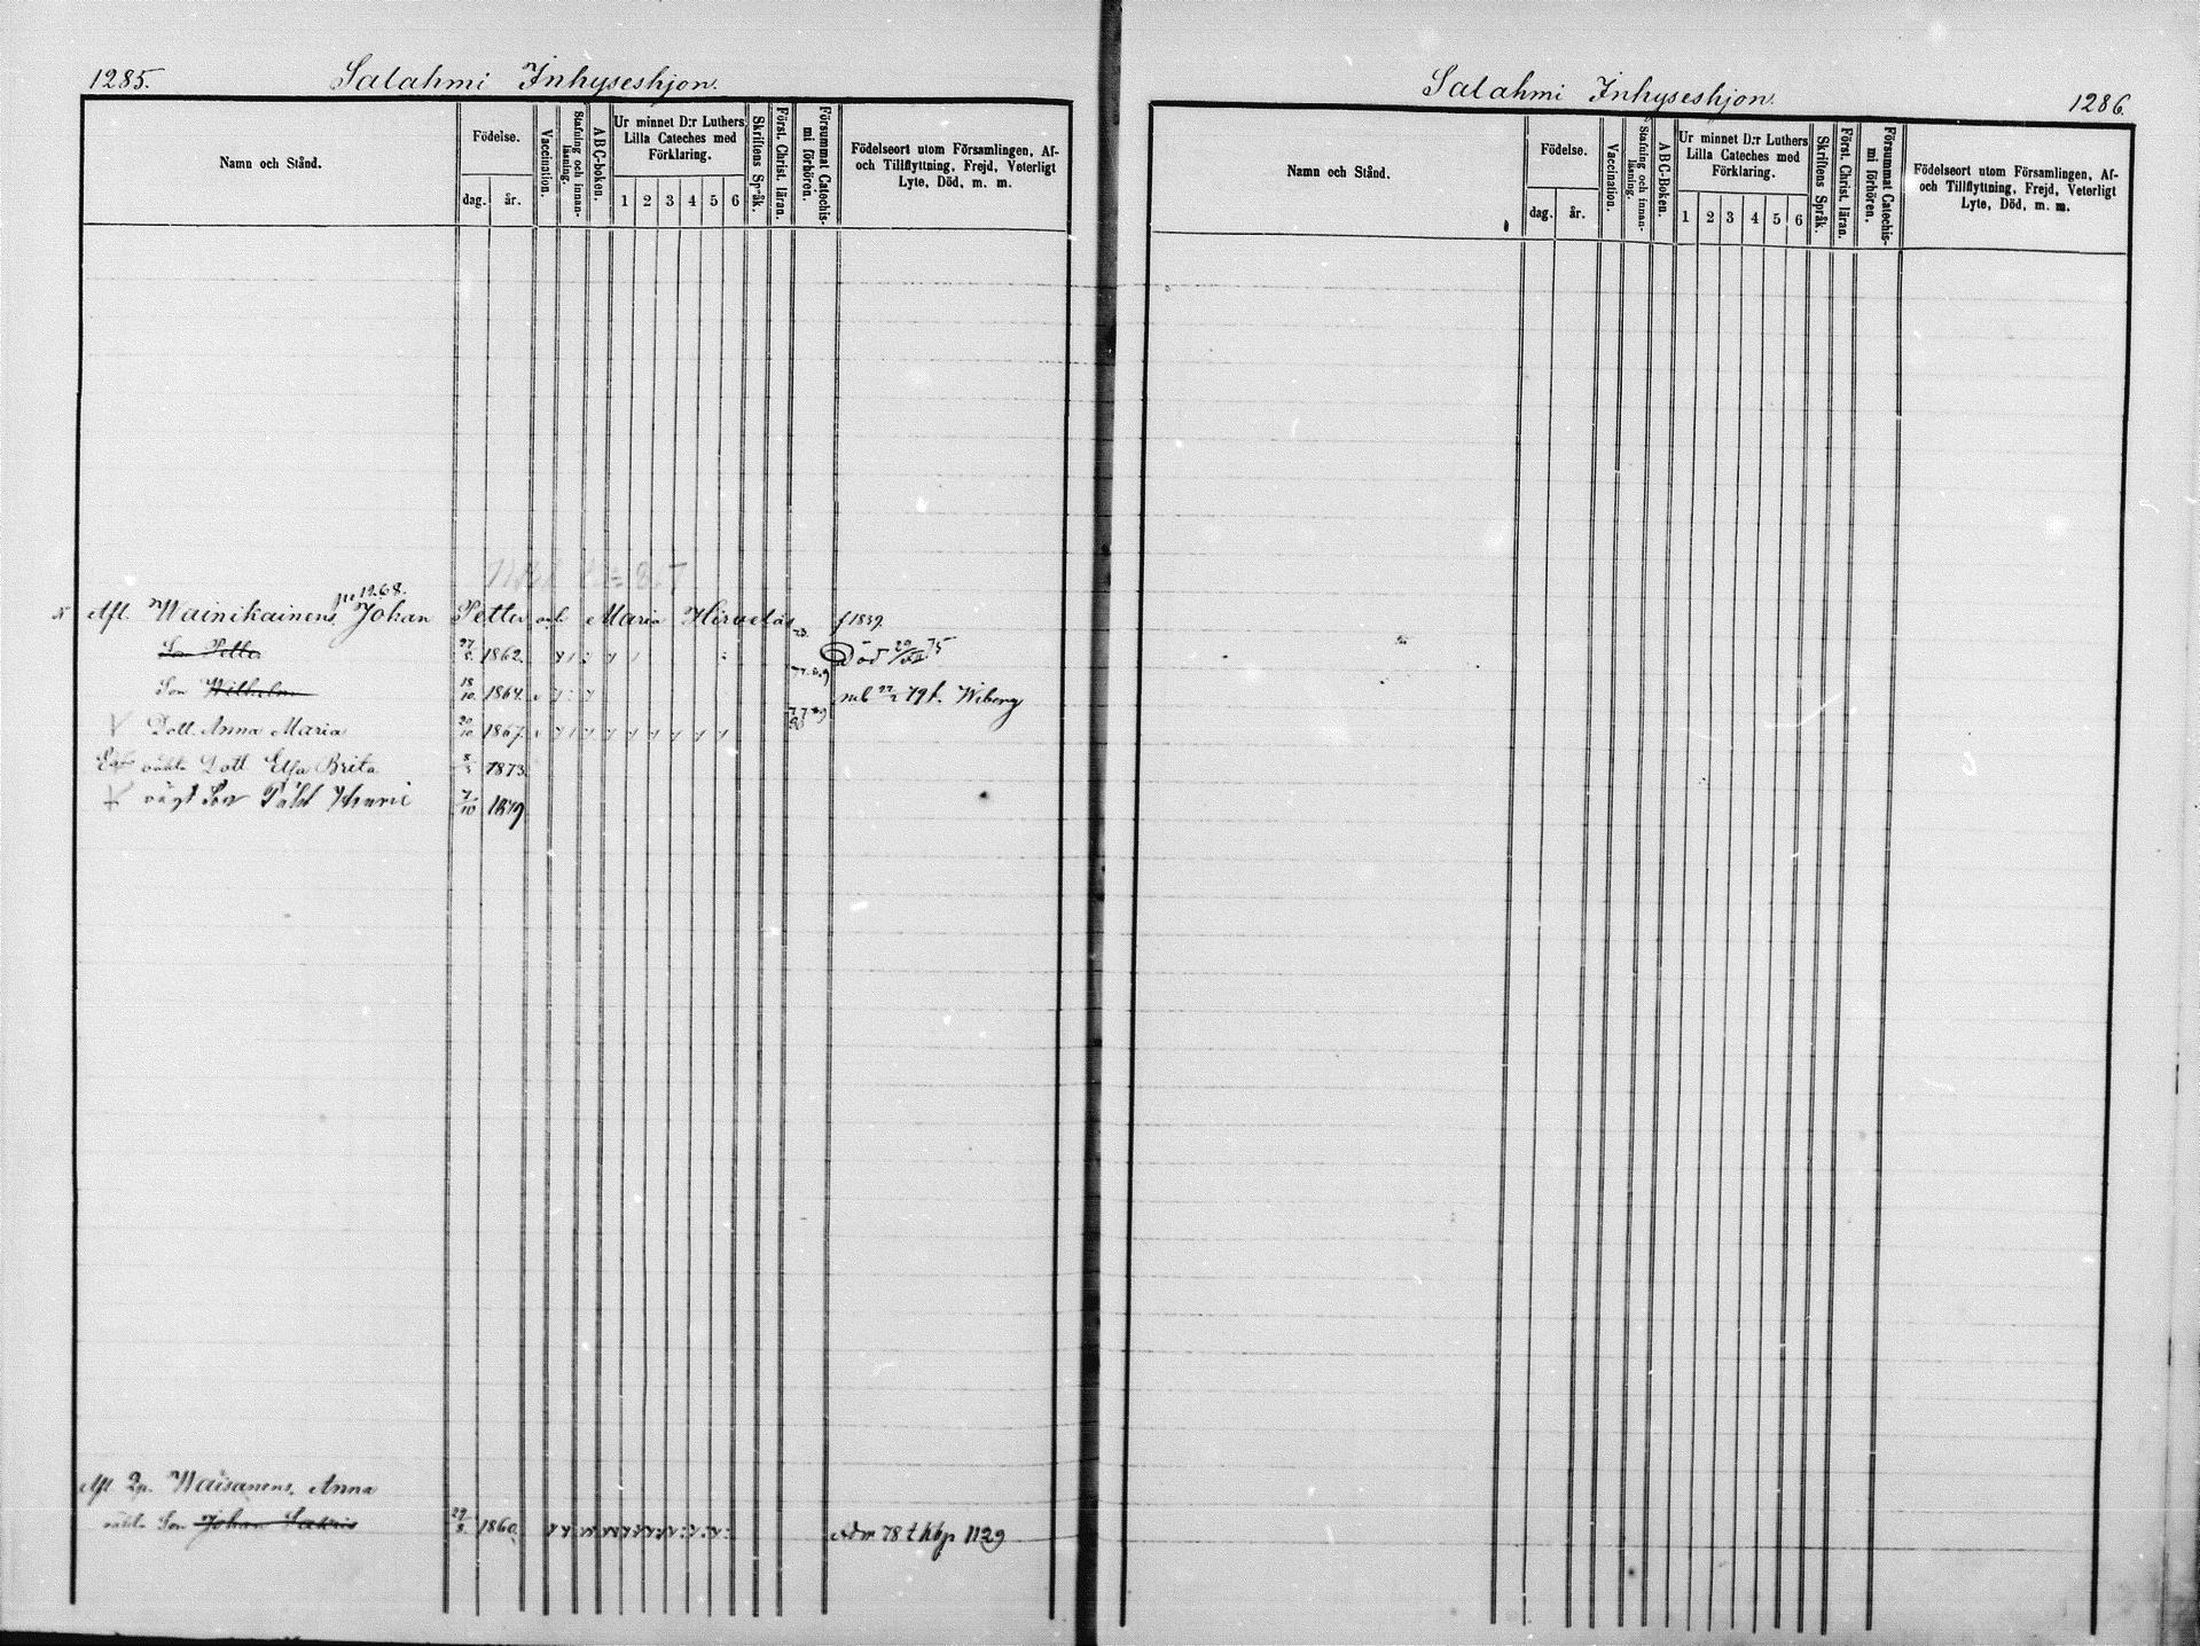 1285.
Salahmi Inhyseshjon.
Namn och Stånd.
Födelse.
dag. år.
Vaccination.
Stafning och innan-läsning.
ABC-boken.
Ur minnet D:r Luthers
Lilla Cateches med
Förklaring.
1 2 3 4 5 6
Skriftens Språk.
Först. Christ. läran.
Försummat Catechis-mi förhören.
Födelseort utom Församlingen, Af-
och Tillflyttning, Frejd, Veterligt
Lyte, Död, m. m.
1268.
Afl. Wainikainens Johan Petter och Maria Hirveläs f 1839.
Son Petter 1862. Död 75
Son Wilhelm 18/10 1864. 79 t. Wiborg
Dott. Anna Maria 20/10 1867.
oäkta Dott Elsa Brita 1873.
oägt Son Pähl Henric 7/10 1879
Afl. Waisanens, Anna
oäkta Son Johan Sakris 29/8. 1860. Adm 78 t kbp 1129
Salahmi Inhyseshjon.
1286.
Namn och Stånd.
Födelse.
dag. år.
Vaccination.
Stafning och innan-läsning.
ABC-Boken.
Ur minnet D:r Luthers
Lilla Cateches med
Förklaring.
1 2 3 4 5 6
Skriftens Språk.
Först. Christ. läran.
Försummat Catechis-mi förhören.
Födelseort utom Församlingen, Af-
och Tillflyttning, Frejd, Veterligt
Lyte, Död, m. m.